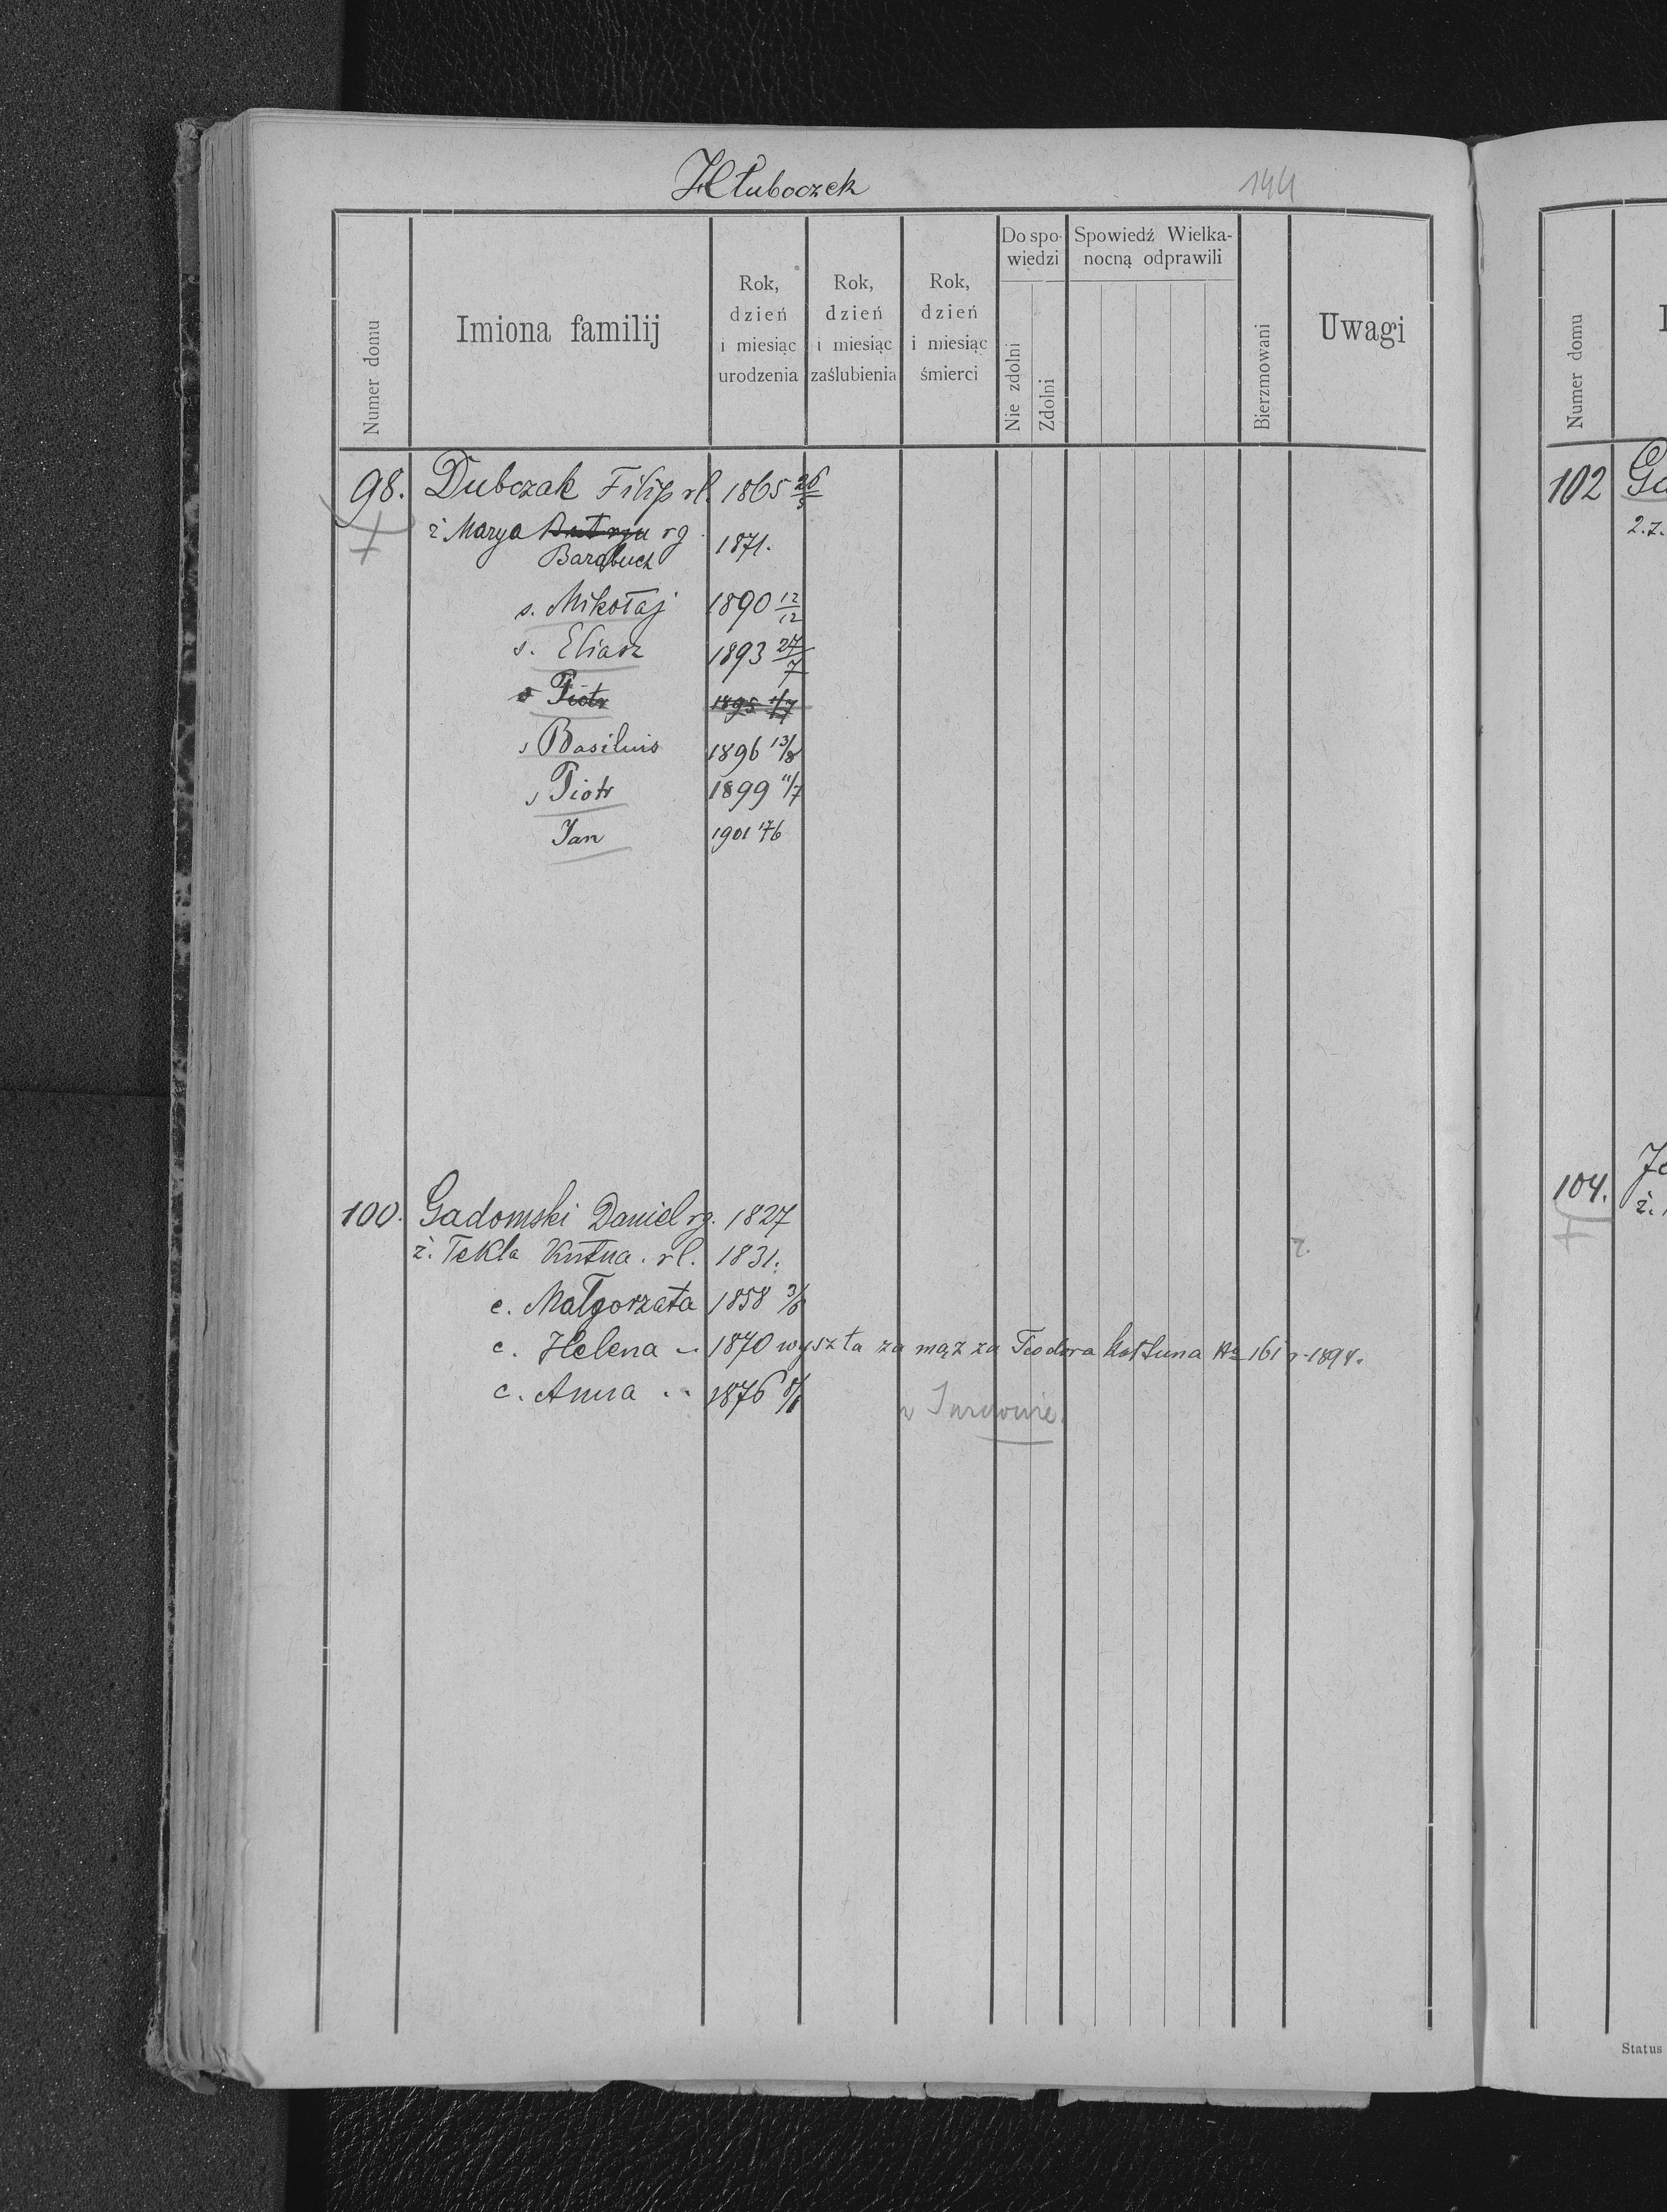 Hłuboczek
144
Numer domu
Imiona familij
Rok, dzień i miesiąc urodzenia
Rok, dzień i miesiąc zaślubienia
Rok, dzień i miesiąc śmierci
Do spowiedzi
Nie zdolni
Zdolni
Spowiedź Wielkanocną odprawili
Bierzmowani
Uwagi
98. Dubczak Filip rl. 1865 26/5
ż Marya rg. 1871.
s. Mikołaj 1890 12/12
s. Eliasz 1893 27/7
s Piotr 1895
s Basilius 1896 13/8
s Piotr 1899 11/7
Jan 1901
100. Gadomski Daniel rg. 1827
ż. Tekla rl. 1831.
c. Małgorzata 1858
c. Helena 1870 wyszła za mąż za Teodora No 161 r. 1894.
c. Anna 1876
Numer domu
102
2.ż.
104.
ż.
Status